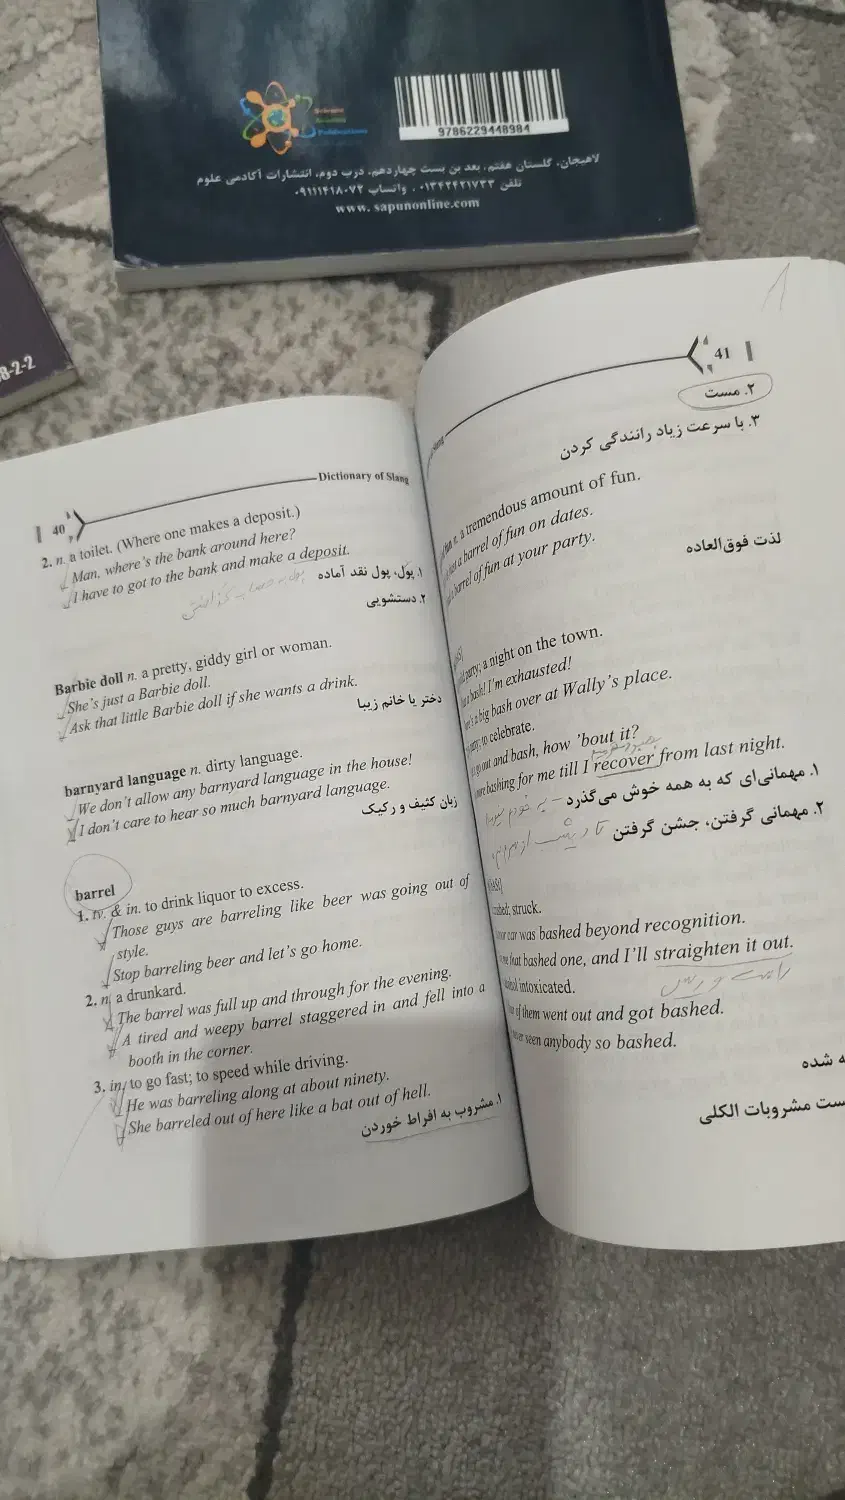 9786229448984
لاهیجان، گلستان هفتم، بعد بن بست چهاردهم، درب دوم، انتشارات آکادمی علوم
تلفن ۰۱۳۴۲۴۲۱۷۳۳ . واتساپ ۰۹۱۱۱۴۱۸۰۷۲
www. sapunonline.com
8-2-2
Dictionary of Slang
40
2. n. a toilet. (Where one makes a deposit.)
Man, where's the bank around here?
I have to got to the bank and make a deposit.
۱. پول، پول نقد آماده
۲. دستشویی
Barbie doll n. a pretty, giddy girl or woman.
She's just a Barbie doll.
Ask that little Barbie doll if she wants a drink.
دختر یا خانم زیبا
barnyard language n. dirty language.
We don't allow any barnyard language in the house!
I don't care to hear so much barnyard language.
زبان کثیف و رکیک
barrel
1. tv. & in. to drink liquor to excess.
Those guys are barreling like beer was going out of
style.
Stop barreling beer and let's go home.
2. n. a drunkard.
The barrel was full up and through for the evening.
A tired and weepy barrel staggered in and fell into a
booth in the corner.
3. in. to go fast; to speed while driving.
He was barreling along at about ninety.
She barreled out of here like a bat out of hell.
۱. مشروب به افراط خوردن
41
۲. مست
۳. با سرعت زیاد رانندگی کردن
n. a tremendous amount of fun.
barrel of fun on dates.
barrel of fun at your party.
لذت فوق‌العاده
party; a night on the town.
bash! I'm exhausted!
big bash over at Wally's place.
to celebrate.
go out and bash, how 'bout it?
bashing for me till I recover from last night.
۱. مهمانی‌ای که به همه خوش می‌گذرد
۲. مهمانی گرفتن، جشن گرفتن
struck.
car was bashed beyond recognition.
that bashed one, and I'll straighten it out.
intoxicated.
of them went out and got bashed.
seen anybody so bashed.
شده
مشروبات الکلی